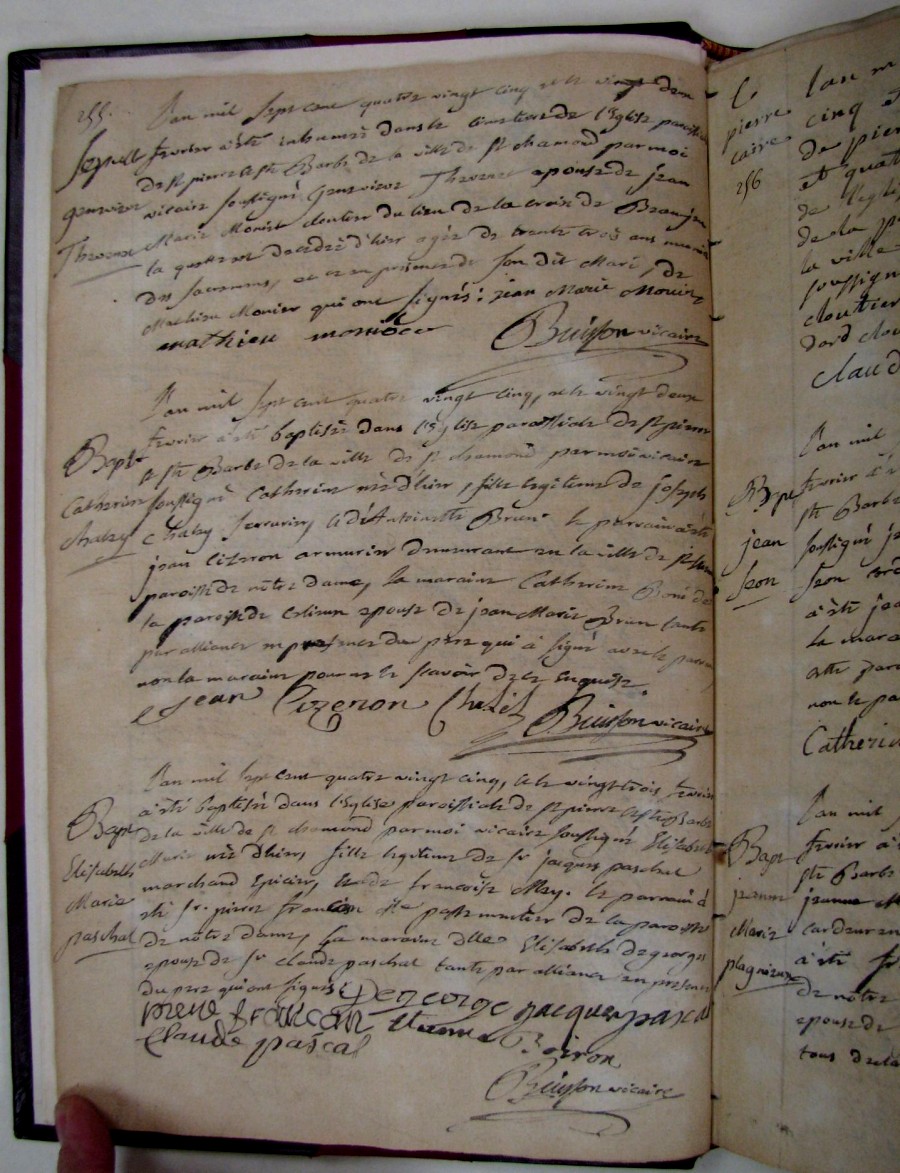 255.
L'an mil sept cent quatre vingt cinq et le vingt deux
Sepult
fevrier a été inhumée dans le cimetiere de l'Eglise paroissiale
genevieve
de st pierre & ste Barbe de la ville de st chamond par moi
vicaire soussigné Genevieve Thevenet epouse de jean
Thevenet
Marie Monier cloutier du lieu de la croix de Beaujeu
la quelle est decedée d'hier agée de trente trois ans munie
des sacremens, et ce en presence de son dit Mari, de
Mathieu Monier qui ont signés: jean Marie Monier
mathieu monier
Buisson vicaire
L'an mil sept cent quatre vingt cinq, et le vingt deux
fevrier a été baptisée dans l'Eglise paroissiale de st pierre
Bapt
& ste Barbe de la ville de st chamond par moi vicaire
Catherine
soussigné Catherine née d'hier, fille legitime de joseph
Chaley
Chaley serrurier, & d'Antoinette Brun. le parrain a été
jean Cizeron armurier demeurant en la ville de st
paroisse de nôtre dame, la maraine Catherine
la paroisse de epouse de jean Marie Brun tante
par alliance en presence du pere qui a signé avec le parrain
non la maraine pour ne le scavoir de ce enquise.
Jean Cizeron
Buisson vicaire
L'an mil sept cent quatre vingt cinq, & le vingt trois fevrier
a été baptisée dans l'Eglise paroissiale de st pierre & ste Barbe
Bapt
de la ville de st chamond par moi vicaire soussigné Elisabeth
Elisabeth
Marie née d'hier, fille legitime de sr jacques paschal
Marie
marchand epicier, & de francoise May. le parrain a
paschal
été sr. pierre francon passementier de la paroisse
de nôtre dame, la maraine dlle Elisabeth degeorges
epouse de sr claude paschal tante par alliance en presence
du pere qui ont signés
pierre francon Degeorge jacques pascal
Claude pascal Etienne Boiron
Buisson vicaire
L'an m
pierre
cinq et
caire
de pier
256
et quat
de l'egli
de la p
la ville
soussign
cloutier
claud
L'an mil
Bapt
fevrier a é
ste Barbe
jean
soussigné je
Seon
Seon
a été jea
la mara
non le pa
Catherin
L'an mil
Bapt
fevrier a é
ste Barbe
jeanne
jeanne M
Marie
cardeur en
plagnieux
a été
de nôtre
epouse de
tous de la